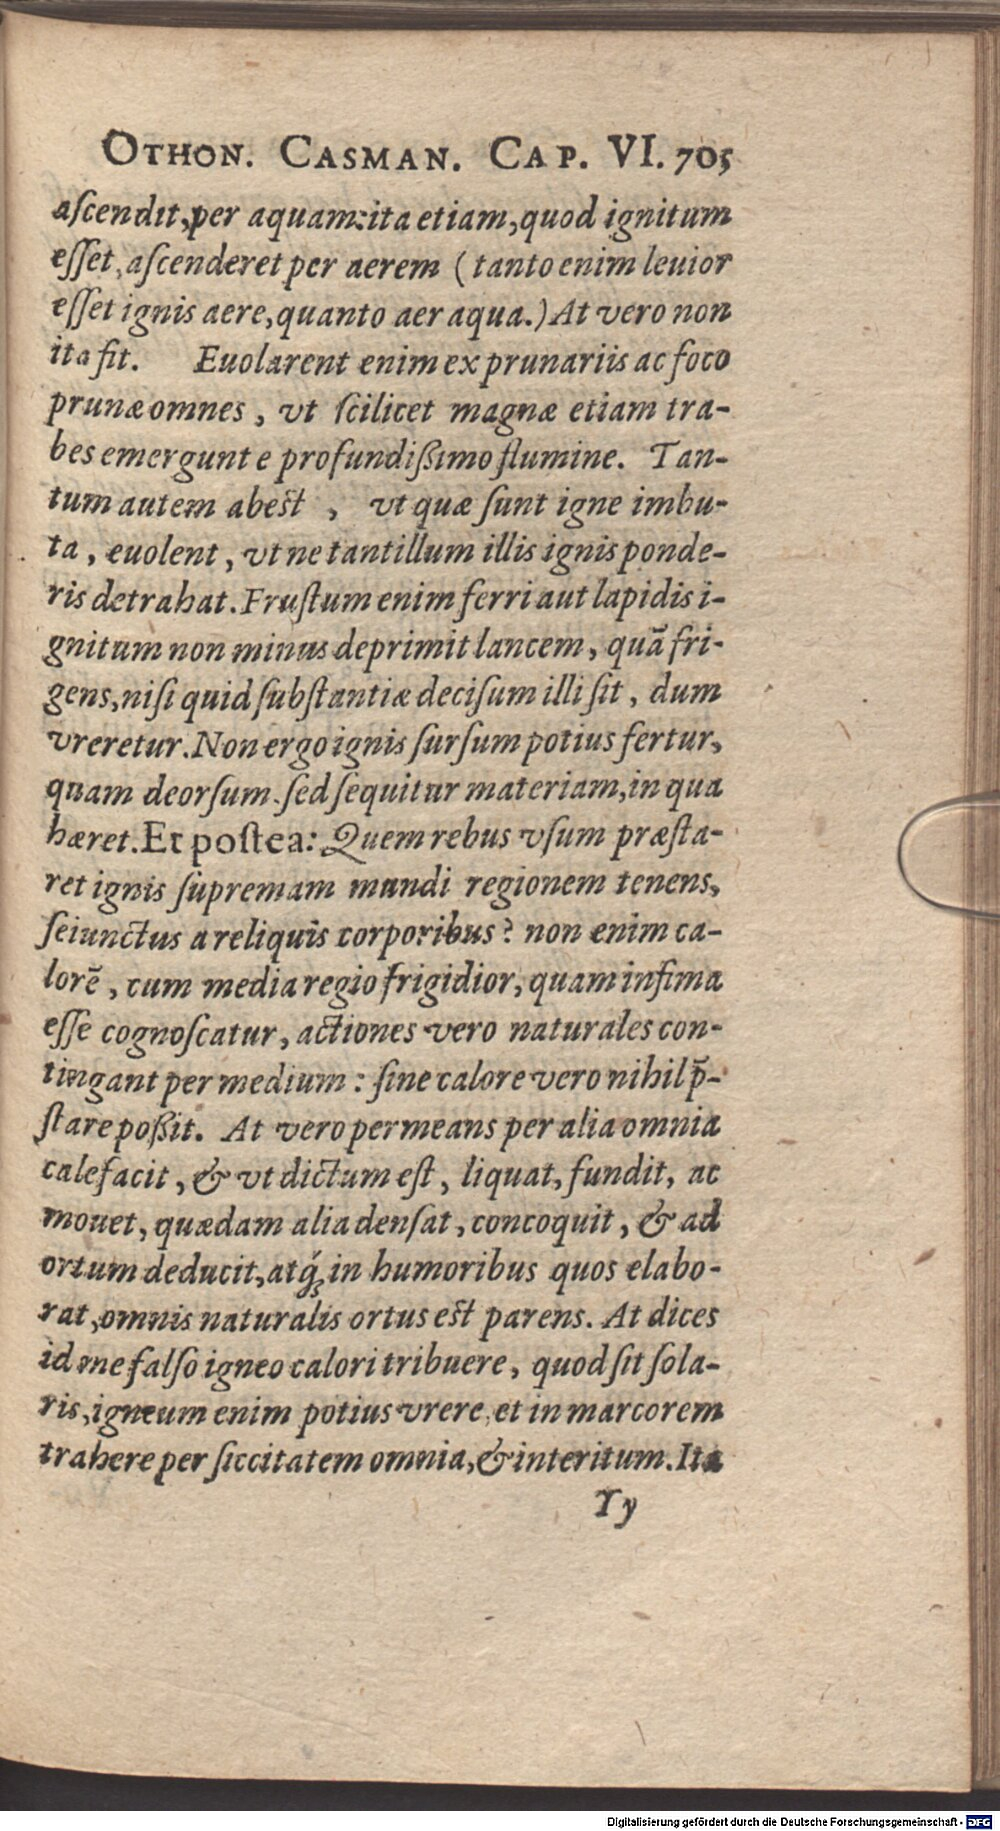 OTHON. CASMAN. CAP. VI. 705
aſcendit, per aquam: ita etiam, quod ignitum
eſſet, aſcenderet per aerem (tanto enim leuior
eſſet ignis aere, quanto aer aqua.) At vero non
ita fit. Euolarent enim ex prunariis ac foco
prunæ omnes, vt ſcilicet magnæ etiam tra-
bes emergunt e profundißimo flumine. Tan-
tum autem abest, vt quæ ſunt igne imbu-
ta, euolent, vt ne tantillum illis ignis ponde-
ris detrahat. Fruſtum enim ferri aut lapidis i-
gnitum non minus deprimit lancem, quā fri-
gens, niſi quid ſubſtantiæ deciſum illi ſit, dum
vreretur. Non ergo ignis ſurſum potius fertur,
quam deorſum. ſed ſequitur materiam, in qua
hæret. Et poſtea: Quem rebus vſum præſta-
ret ignis ſupremam mundi regionem tenens,
ſeiunctus a reliquis corporibus? non enim ca-
lorē, cum media regio frigidior, quam infima
eſſe cognoſcatur, actiones vero naturales con-
tingant per medium: ſine calore vero nihil p̄-
ſtare poßit. At vero permeans per alia omnia
calefacit, & vt dictum eſt, liquat, fundit, ac
mouet, quædam alia denſat, concoquit, & ad
ortum deducit, atq́; in humoribus quos elabo-
rat, omnis naturalis ortus est parens. At dices
id me falſo igneo calori tribuere, quod ſit ſola-
ris, igneum enim potius vrere, et in marcorem
trahere per ſiccitatem omnia, & interitum. Ita
Yy
Digitalisierung gefördert durch die Deutsche Forschungsgemeinschaft - DFG